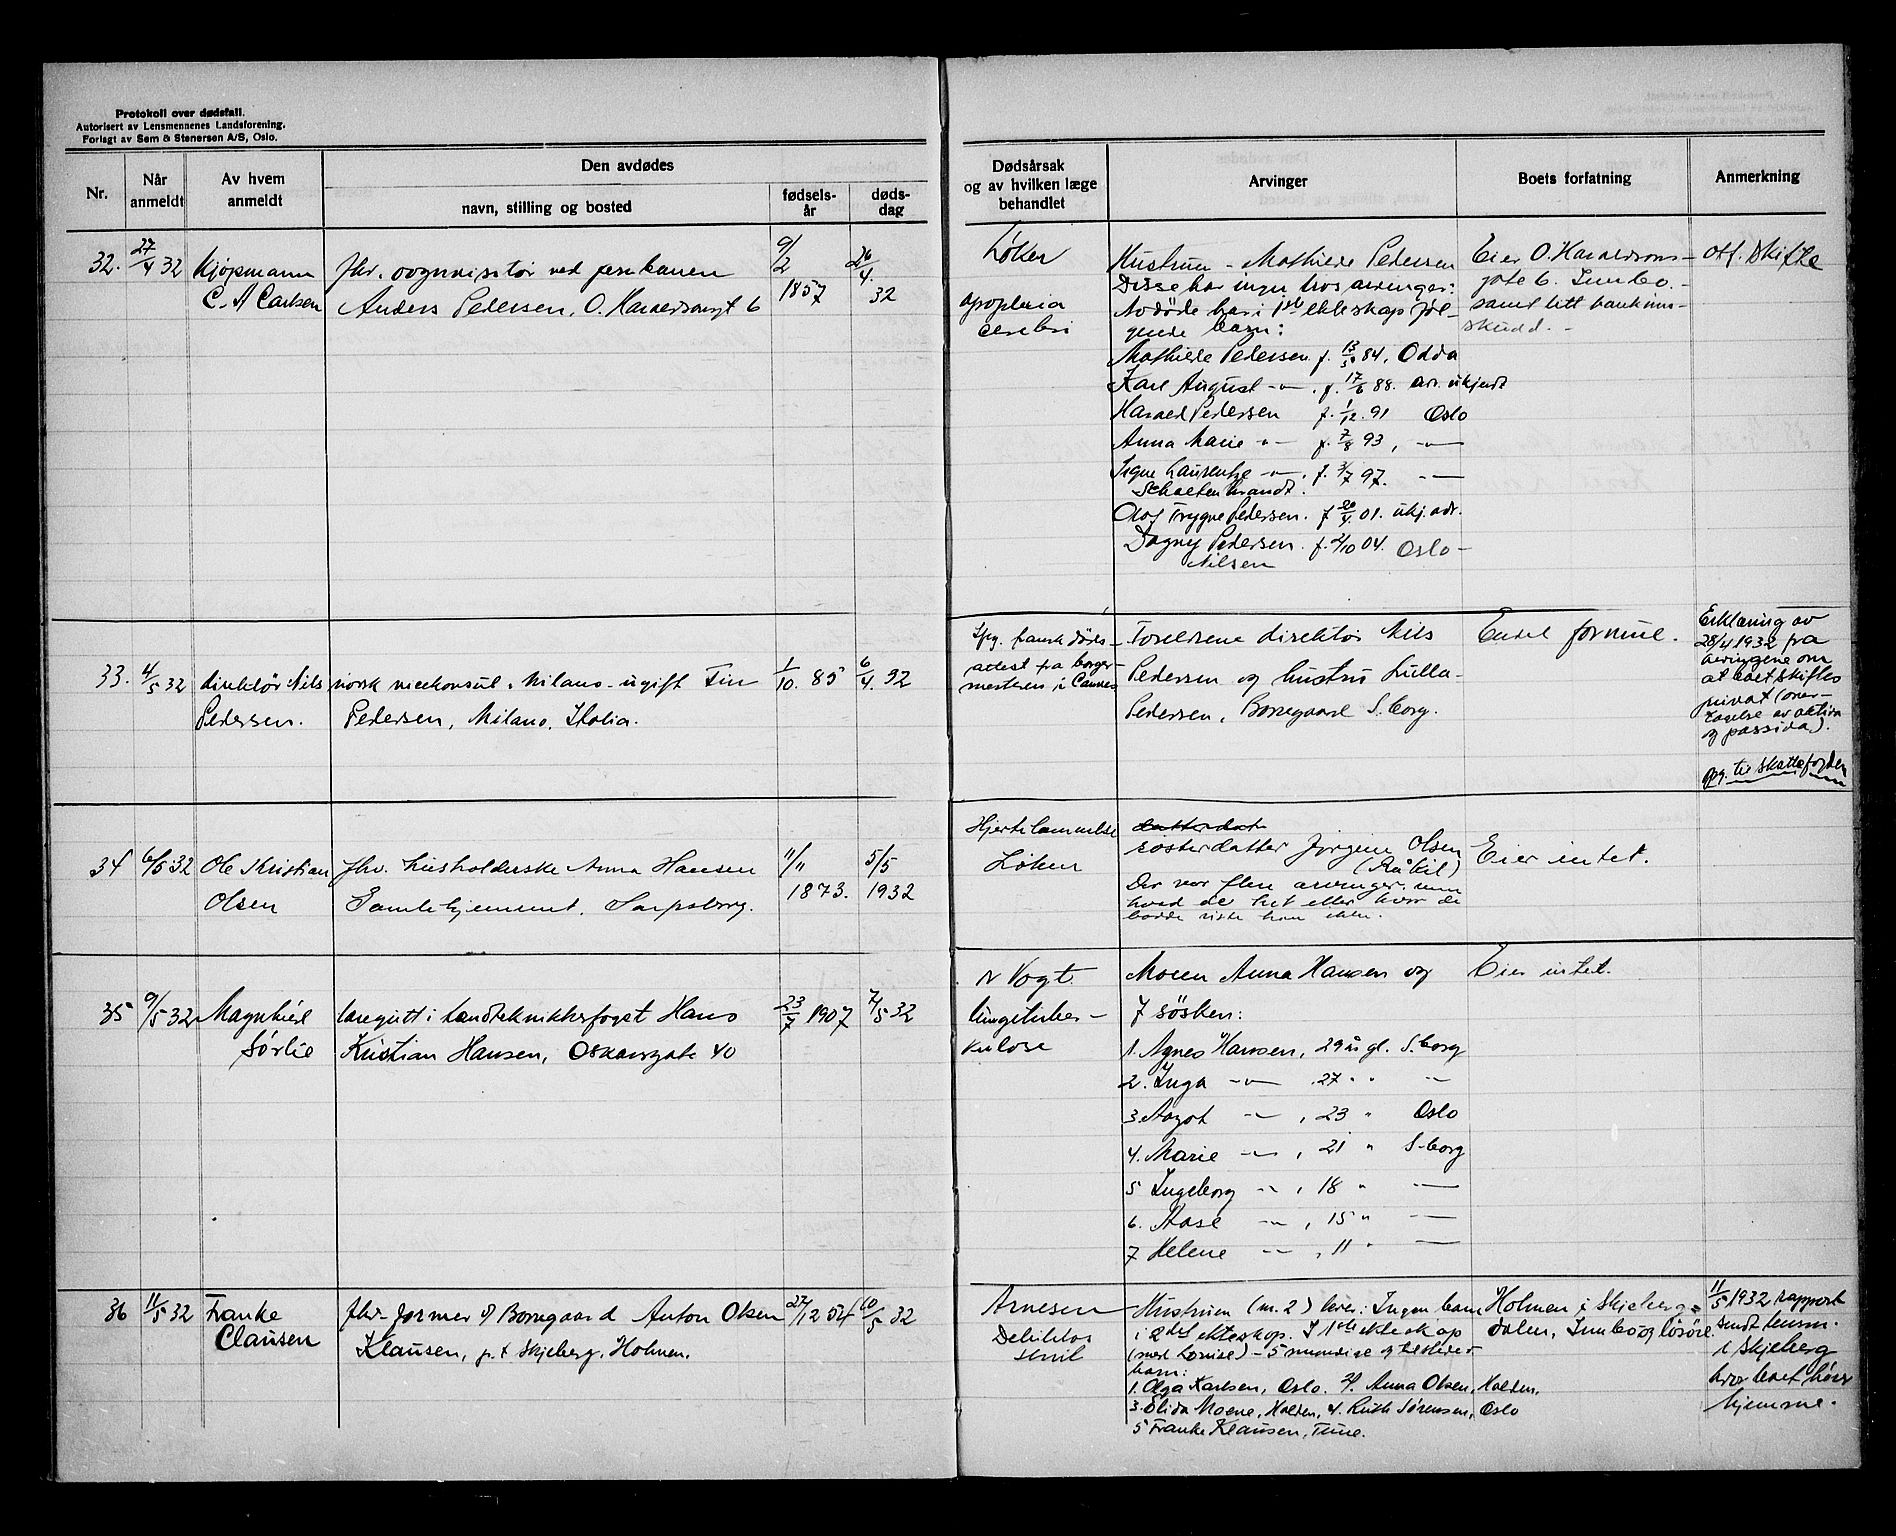 Protokoll over dødsfall.
Autorisert av Lensmennenes Landsforening.
Forlagt av Sem & Stenersen A/S, Oslo.
Nr.
Når
anmeldt
Av hvem
anmeldt
Den avdødes
navn, stilling og bosted
fødsels-
år
døds-
dag
Dødsårsak
og av hvilken læge
behandlet
Arvinger
Boets forfatning
Anmerkning
32.
27/4 32
Kjøpmann
C. A Carlsen
fhv. vognvisitør ved jernbanen
Anders Pedersen, O. Haraldsonsgt 6
9/2
1857
26/4.
32
Løken
apoplexia
cerebri
Hustrun - Mathilde Pedersen
Disse har ingen livsarvinger:
Avdøde har i 1ste ekteskap føl-
gende barn:
Mathilde Pedersen f. 84. Odda
Karl August -"- . f. 17/6 88. adr. ukjendt
Harald Pedersen f. 1/12. 91 Oslo
Anna Marie -"- f. 7/8 93, -"-
Signe -"- . f. 3/7 97. -"-
Olaf Trygve Pedersen. f 20/4 01. ukj. adr.
Dagny Pedersen. f. 2/10 04. Oslo -
Nilsen
Eier O. Haraldsons-
gate 6. Innbo. -
samt litt bankinn-
skudd. -
Off. skifte
33.
4/5 32
direktør Nils
Pedersen.
norsk vicekonsul. Milano - ugift Finn
Pedersen, Milano, Italia.
1/10. 85
6/4. 32
Ifg. fransk døds-
attest fra borger-
mesteren i Cannes
Foreldrene direktør Nils
Pedersen og hustru Lulla
Pedersen, Borregaard S.borg.
Endel formue.
Erklæring av
28/4 1932 fra
arvingene om
at boet skiftes
privat (over-
tagelse av aktiva
og passiva).
34
6/5 32
Ole Kristian
Olsen
fhv. husholderske Anna Hansen
Gamlehjemmet, Sarpsborg.
"/"
1873.
5/5
1932
Hjertelammelse
Løken
søsterdatter Jørgine Olsen
Der var flere arvinger, men
hvad de het eller hvor de
bodde viste han ikke.
Eier intet.
35
9/5 32
Magnhild
Sørlie
læregutt i tandteknikkerfaget Hans
Kristian Hansen, Oskarsgate 40
23/7 1907
7/5 32
N Vogt
lungetuber-
kulose
Moren Anna Hansen og
7 søsken:
1. Agnes Hansen, 29 år gl. S.borg
2. Inga -"- . 27 " " -"-
3. Aagot -"- , 23 " Oslo
4. Marie -"- , 21 " S-borg
5 Ingeborg -"- , 18 " -"-
6. Aase -"- , 15 " -"-
7 Helene -"- , 11 " -"-
Eier intet.
36
11/5 32
Franke
Clausen
fhv. former v/ Borregaard Anton Olsen
Klausen, p.t Skjeberg, Holmen.
27/12 54
10/5 32
Arnesen
Debilitas
senil
Hustruen (nr. 2) lever: Ingen barn
i 2det ekteskap. I 1ste ekteskap
(med Lovise) - 5 myndige og tilstede-
barn:
1. Olga Karlsen, Oslo. 2/. Anna Olsen, Halden,
3. Elida Moene, Halden, 4. Ruth Sørensen, Oslo
5 Franke Klausen, Tune.
Holmen i Skjeberg-
dalen, Innbo og løsøre.
11/5 1932 rapport
sendt lensm.
i Skjeberg
hvor boet hører
hjemme.